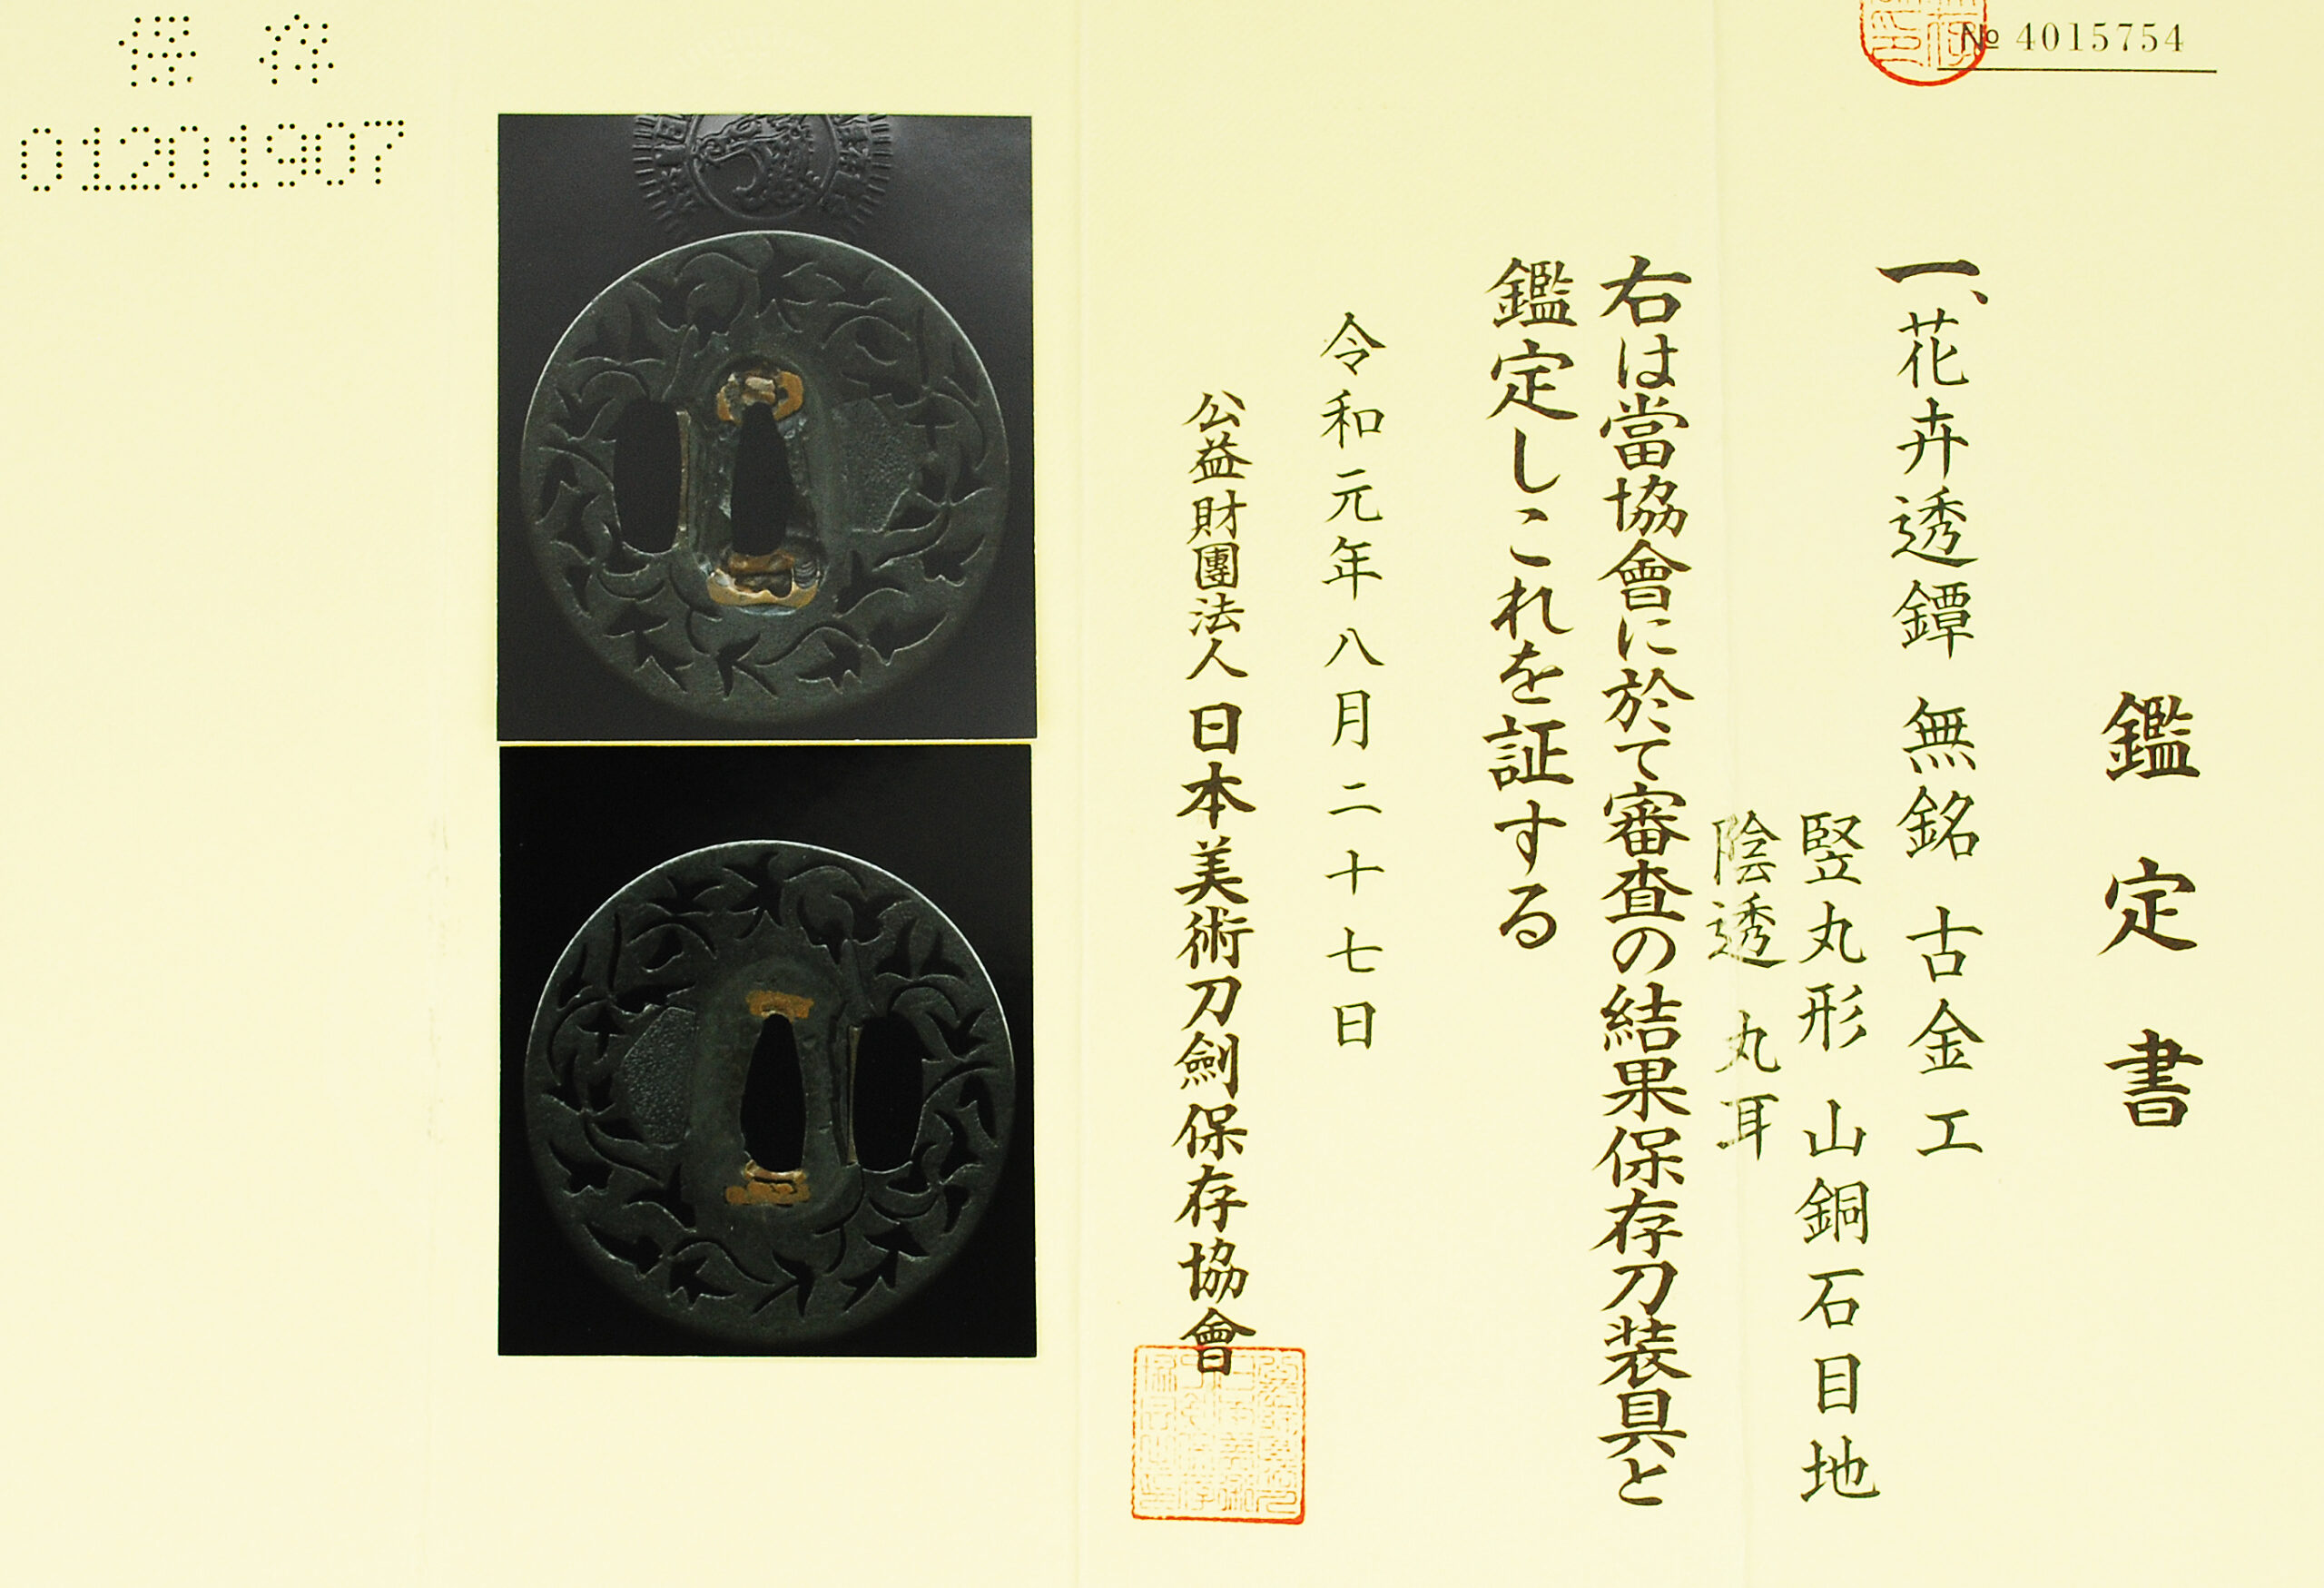 № 4015754
鑑定書
一、花卉透鐔 無銘 古金工
竪丸形 山銅石目地
陰透 丸耳
右は當協會に於て審査の結果保存刀装具と
鑑定しこれを証する
令和元年八月二十七日
公益財團法人 日本美術刀劍保存協會
保存
01201907